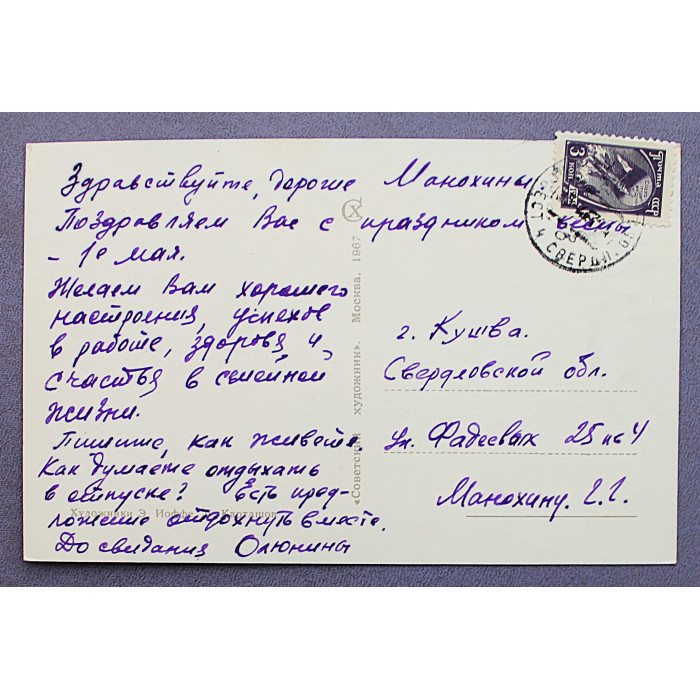 Здравствуйте, дорогие Манохины
Поздравляем Вас с праздником весны
- 1е мая.
Желаем Вам хорошего
настроения, успехов
в работе, здоровя, и
счастья в семейной
жизни.
Пишите, как живете.
Как думаете отдыхать
в отпуске? Есть пред-
ложение отдохнуть вместе.
До свидания Олюнины
Художники Э. Иоффе, Карташов
«Советский художник». Москва. 1967
СХ
Почта
СССР
3 коп.
г. Кушва.
Свердловской обл.
ул. Фадеевых 25 кв 4
Манохину. Г. Г.